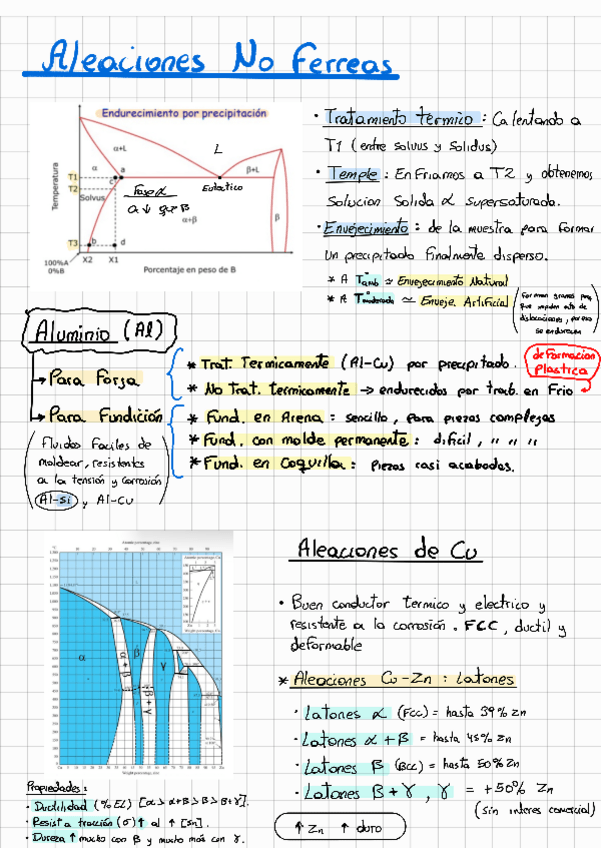 Aleaciones No Ferreas
Endurecimiento por precipitación
Temperatura
α+L
L
α
a
β+L
T1
T2
c
Solvus
Fase α
α ↓ que β
Eutectico
α+β
β
T3
b
d
100%A
0%B
X2
X1
Porcentaje en peso de B
· Tratamiento termico : Calentando a
T1 (entre solvus y Solidus)
· Temple : Enfriamos a T2 y obtenemos
Solucion Solida α supersaturada.
· Envejecimiento : de la muestra para formar
un precipitado finalmente disperso.
* A Tamb ≃ Envejecimiento Natural
* A Tmoderada ≃ Enveje. Artificial
(Forman granos pa
que impiden mto de
dislocaciones, por eso
se endurecen
Aluminio (Al)
→ Para Forja
* Trat. Termicamente (Al-Cu) por precipitado.
* No Trat. termicamente → endurecidos por trab. en Frio
deformacion
plastica
→ Para Fundición
(Fluidos Faciles de
moldear, resistentes
a la tensión y corrosión)
Al-Si y Al-Cu
* Fund. en Arena : sencillo, para piezas complejas
* Fund. con molde permanente : dificil, " " "
* Fund. en Coquilla : Piezas casi acabadas.
α
α + β
β
β + γ
γ
Aleaciones de Cu
· Buen conductor termico y electrico y
resistente a la corrosión. FCC, ductil y
deformable
* Aleaciones Cu-Zn : Latones
· Latones α (FCC) = hasta 39% Zn
· Latones α + β = hasta 45% Zn
· Latones β (BCC) = hasta 50% Zn
· Latones β + γ, γ = +50% Zn
(sin interes comercial)
↑ Zn ↑ duro
Propiedades :
· Ductilidad (% EL) [α > α+β > β > β+γ].
· Resist a tracción (σ) ↑ al ↑ [Sn].
· Dureza ↑ mucho con β y mucho más con γ.